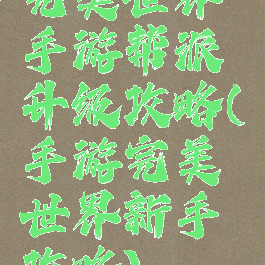 完美世界
手游帮派
升级攻略(
手游完美
世界新手
攻略)